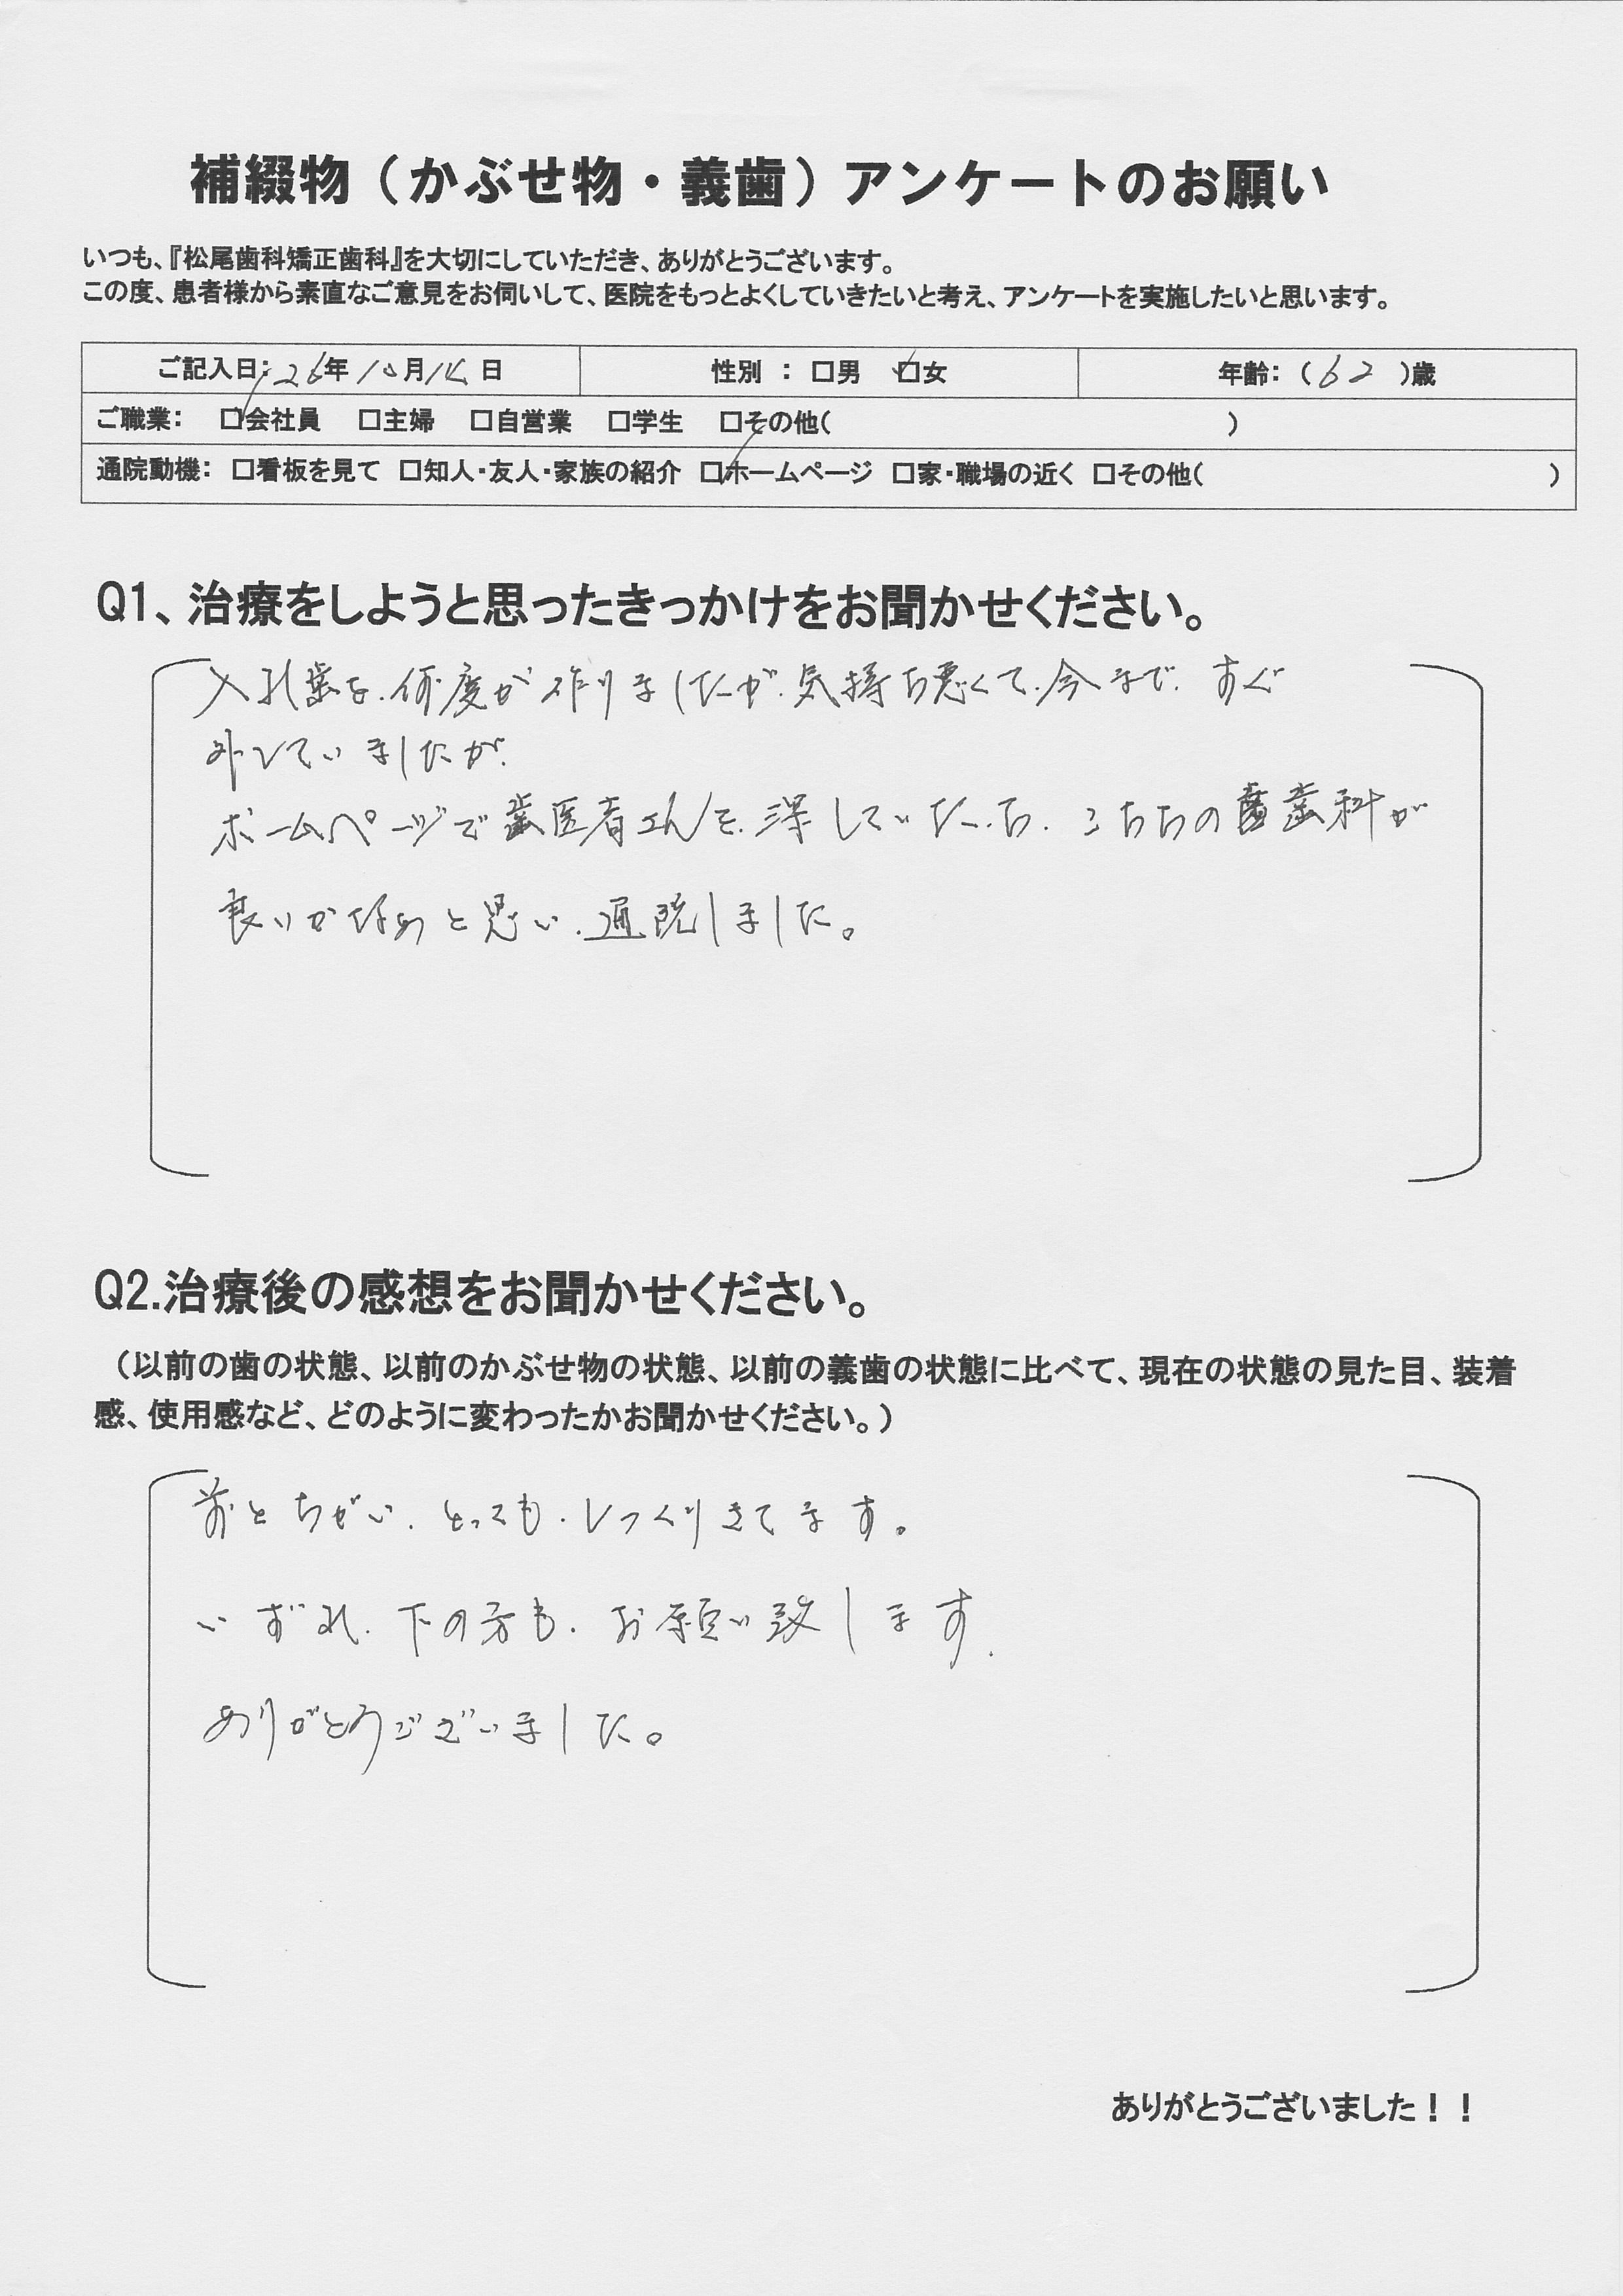 補綴物（かぶせ物・義歯）アンケートのお願い
いつも、『松尾歯科矯正歯科』を大切にしていただき、ありがとうございます。
この度、患者様から素直なご意見をお伺いして、医院をもっとよくしていきたいと考え、アンケートを実施したいと思います。
ご記入日：26年10月14日 性別 ： □男 ☑女 年齢：（62）歳
ご職業： ☑会社員 □主婦 □自営業 □学生 □その他（ ）
通院動機： □看板を見て □知人・友人・家族の紹介 ☑ホームページ □家・職場の近く □その他（ ）
Q1、治療をしようと思ったきっかけをお聞かせください。
入れ歯を、何度が作りましたが、気持ち悪くて、今まで、すぐ
外していましたが、
ホームページで歯医者さんを、深していたら、こちらの歯科が
良いかなあと思い、通院しました。
Q2.治療後の感想をお聞かせください。
（以前の歯の状態、以前のかぶせ物の状態、以前の義歯の状態に比べて、現在の状態の見た目、装着
感、使用感など、どのように変わったかお聞かせください。）
前とちがい、とっても、しっくりきてます。
いずれ、下の方も、お願い致します。
ありがとうございました。
ありがとうございました！！